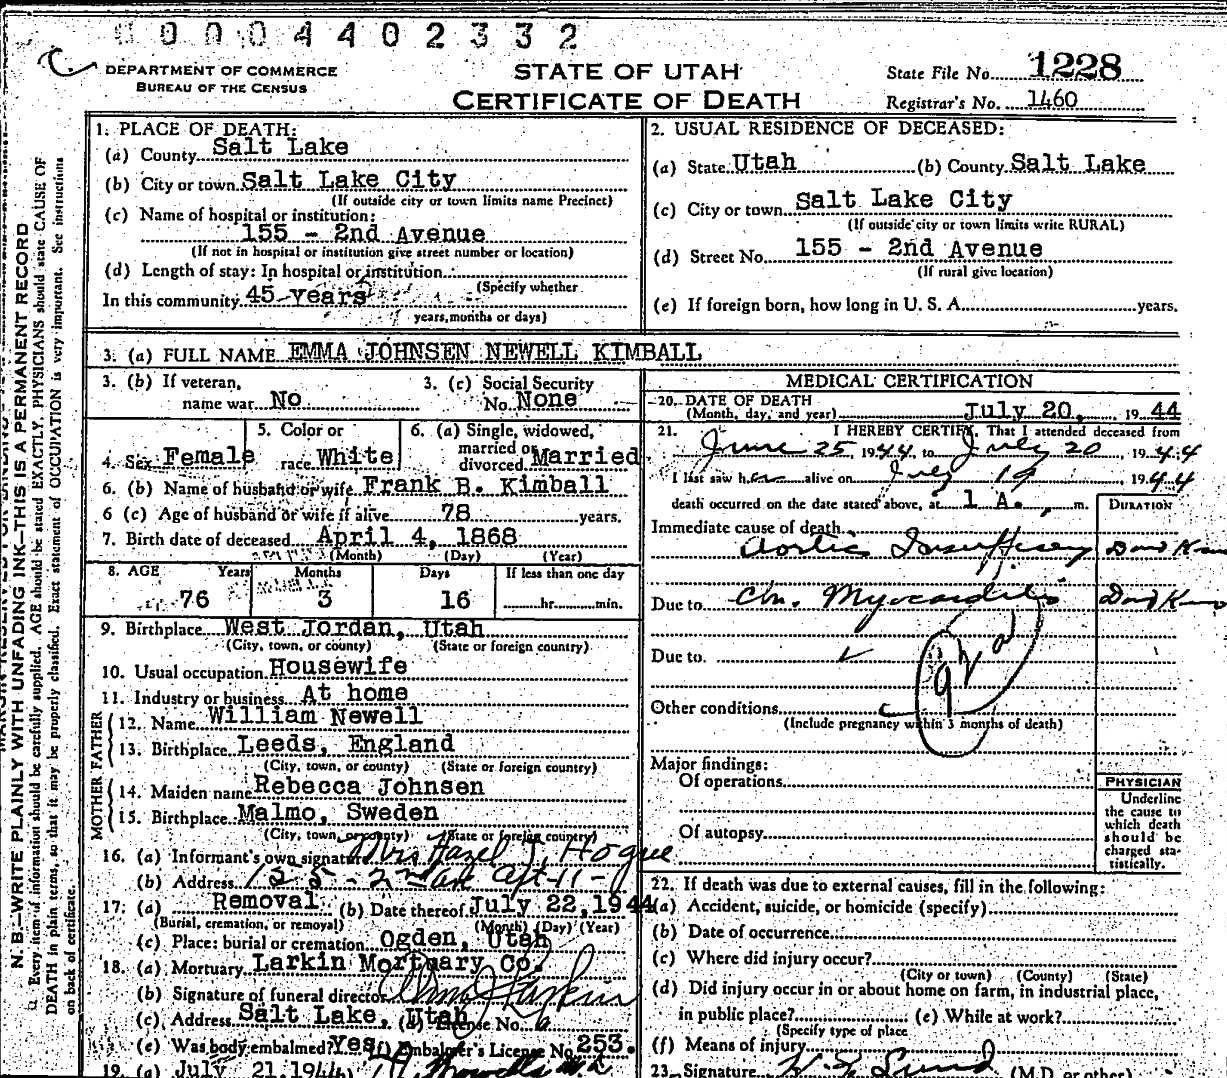 0004402332
DEPARTMENT OF COMMERCE
BUREAU OF THE CENSUS
STATE OF UTAH
CERTIFICATE OF DEATH
State File No. 1228
Registrar's No. 1460
N. B.—WRITE PLAINLY WITH UNFADING INK—THIS IS A PERMANENT RECORD
Every item of information should be carefully supplied. AGE should be stated EXACTLY. PHYSICIANS should state CAUSE OF
DEATH in plain terms, so that it may be properly classified. Exact statement of OCCUPATION is very important. See instructions
on back of certificate.
1. PLACE OF DEATH:
(a) County Salt Lake
(b) City or town Salt Lake City
(If outside city or town limits name Precinct)
(c) Name of hospital or institution:
155 - 2nd Avenue
(If not in hospital or institution give street number or location)
(d) Length of stay: In hospital or institution
(Specify whether
In this community 45 years
years, months or days)
2. USUAL RESIDENCE OF DECEASED:
(a) State Utah (b) County Salt Lake
(c) City or town Salt Lake City
(If outside city or town limits write RURAL)
(d) Street No. 155 - 2nd Avenue
(If rural give location)
(e) If foreign born, how long in U. S. A. years.
3. (a) FULL NAME EMMA JOHNSEN NEWELL KIMBALL
3. (b) If veteran, name war No
3. (c) Social Security No. None
4. Sex Female
5. Color or race White
6. (a) Single, widowed, married or divorced Married
6. (b) Name of husband or wife Frank B. Kimball
6 (c) Age of husband or wife if alive 78 years.
7. Birth date of deceased April 4, 1868
(Month) (Day) (Year)
8. AGE Years Months Days If less than one day
76 3 16 hr. min.
9. Birthplace West Jordan, Utah
(City, town, or county) (State or foreign country)
10. Usual occupation Housewife
11. Industry or business At home
FATHER
12. Name William Newell
13. Birthplace Leeds, England
(City, town, or county) (State or foreign country)
MOTHER
14. Maiden name Rebecca Johnsen
15. Birthplace Malmo, Sweden
(City, town, or county) (State or foreign country)
16. (a) Informant's own signature Mrs Hazel J. Hogue
(b) Address 155 - 2nd ave apt 11
17. (a) Removal (b) Date thereof July 22, 1944
(Burial, cremation, or removal) (Month) (Day) (Year)
(c) Place: burial or cremation Ogden, Utah
18. (a) Mortuary Larkin Mortuary Co.
(b) Signature of funeral director Larkin
(c) Address Salt Lake, Utah License No.
(e) Was body embalmed? Yes (f) Embalmer's License No. 253.
19. (a) July 21, 1944
MEDICAL CERTIFICATION
20. DATE OF DEATH
(Month, day, and year) July 20, 1944
21. I HEREBY CERTIFY, That I attended deceased from
June 25, 1944, to July 20, 1944
I last saw her alive on July 19, 1944
death occurred on the date stated above, at 1 A. m.
DURATION
Immediate cause of death
Aortic Insufficiency
Due to Chr. Myocarditis
Due to.
92d
Other conditions
(Include pregnancy within 3 months of death)
Major findings:
Of operations
Of autopsy
PHYSICIAN
Underline
the cause to
which death
should be
charged sta-
tistically.
22. If death was due to external causes, fill in the following:
(a) Accident, suicide, or homicide (specify)
(b) Date of occurrence
(c) Where did injury occur?
(City or town) (County) (State)
(d) Did injury occur in or about home on farm, in industrial place,
in public place? (e) While at work?
(Specify type of place
(f) Means of injury
23. Signature Lund (M.D. or other)